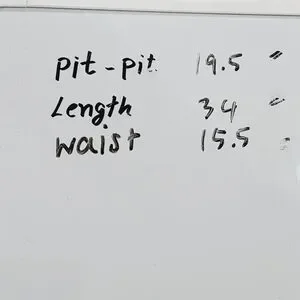 Pit - Pit 19.5 "
Length 34 "
Waist 15.5 "